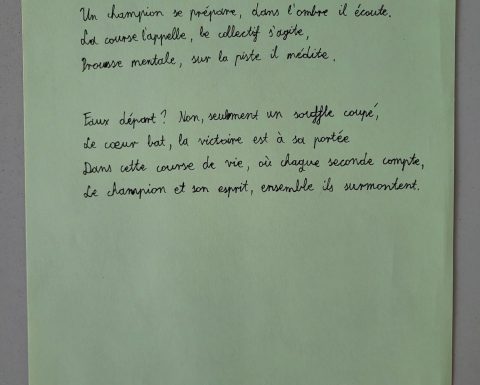 Un champion se prépare, dans l'ombre il écoute.
La course l'appelle, le collectif s'agite,
Prouesse mentale, sur la piste il médite.
Faux départ ? Non, seulement un souffle coupé,
Le cœur bat, la victoire est à sa portée
Dans cette course de vie, où chaque seconde compte,
Le champion et son esprit, ensemble ils surmontent.